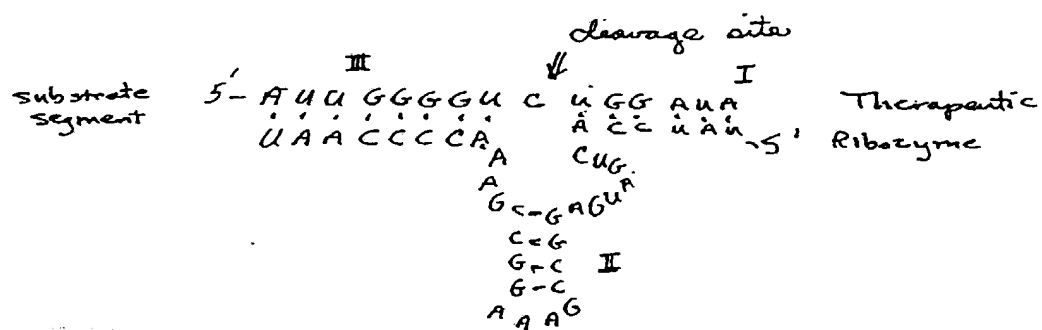 cleavage site
III I
substrate segment 5'- A U U G G G G U C U G G A U A Therapeutic Ribozyme
U A A C C C C A A C C U A U -5'
A C U G
A A
G C - G A G U
C - G
G - C II
G - C
A A A G